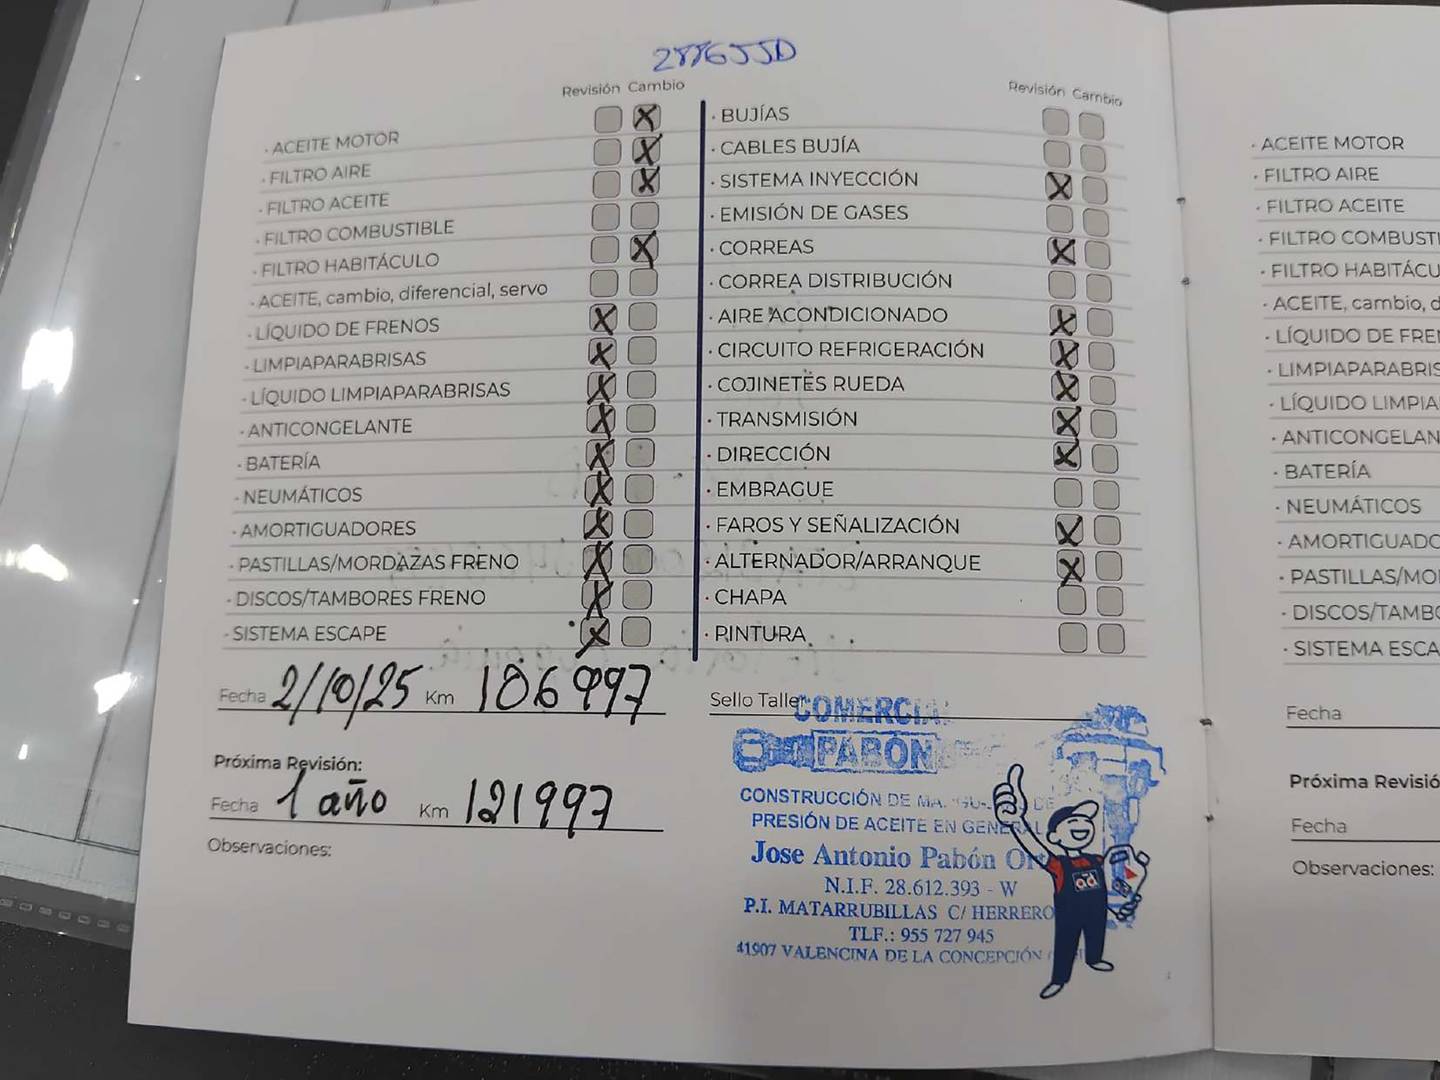 2886JJD
Revisión Cambio
· ACEITE MOTOR
· FILTRO AIRE
· FILTRO ACEITE
· FILTRO COMBUSTIBLE
· FILTRO HABITÁCULO
· ACEITE, cambio, diferencial, servo
· LÍQUIDO DE FRENOS
· LIMPIAPARABRISAS
· LÍQUIDO LIMPIAPARABRISAS
· ANTICONGELANTE
· BATERÍA
· NEUMÁTICOS
· AMORTIGUADORES
· PASTILLAS/MORDAZAS FRENO
· DISCOS/TAMBORES FRENO
· SISTEMA ESCAPE
Fecha 2/10/25 Km 106997
Próxima Revisión:
Fecha 1 año Km 121997
Observaciones:
Revisión Cambio
· BUJÍAS
· CABLES BUJÍA
· SISTEMA INYECCIÓN
· EMISIÓN DE GASES
· CORREAS
· CORREA DISTRIBUCIÓN
· AIRE ACONDICIONADO
· CIRCUITO REFRIGERACIÓN
· COJINETES RUEDA
· TRANSMISIÓN
· DIRECCIÓN
· EMBRAGUE
· FAROS Y SEÑALIZACIÓN
· ALTERNADOR/ARRANQUE
· CHAPA
· PINTURA
Sello Taller
COMERCIA
PABÓN
CONSTRUCCIÓN DE
PRESIÓN DE ACEITE EN GENERAL
Jose Antonio Pabón
N.I.F. 28.612.393 - W
P.I. MATARRUBILLAS C/ HERRERO
TLF.: 955 727 945
41907 VALENCINA DE LA CONCEPCIÓN
ad
· ACEITE MOTOR
· FILTRO AIRE
· FILTRO ACEITE
· FILTRO COMBUSTI
· FILTRO HABITÁCU
· ACEITE, cambio, d
· LÍQUIDO DE FRE
· LIMPIAPARABRIS
· LÍQUIDO LIMPIA
· ANTICONGELAN
· BATERÍA
· NEUMÁTICOS
· AMORTIGUADO
· PASTILLAS/MO
· DISCOS/TAMBO
· SISTEMA ESCA
Fecha
Próxima Revisió
Fecha
Observaciones: